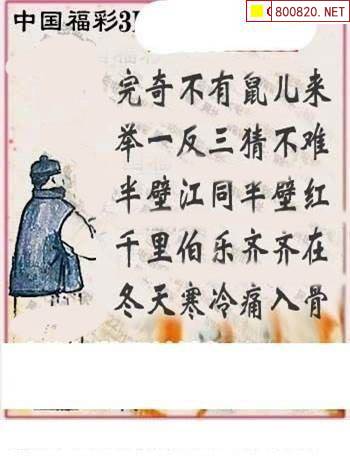 800820.NET
中国福彩3
完奇不有鼠儿来
举一反三猜不难
半壁江同半壁红
千里伯乐齐齐在
冬天寒冷痛入骨